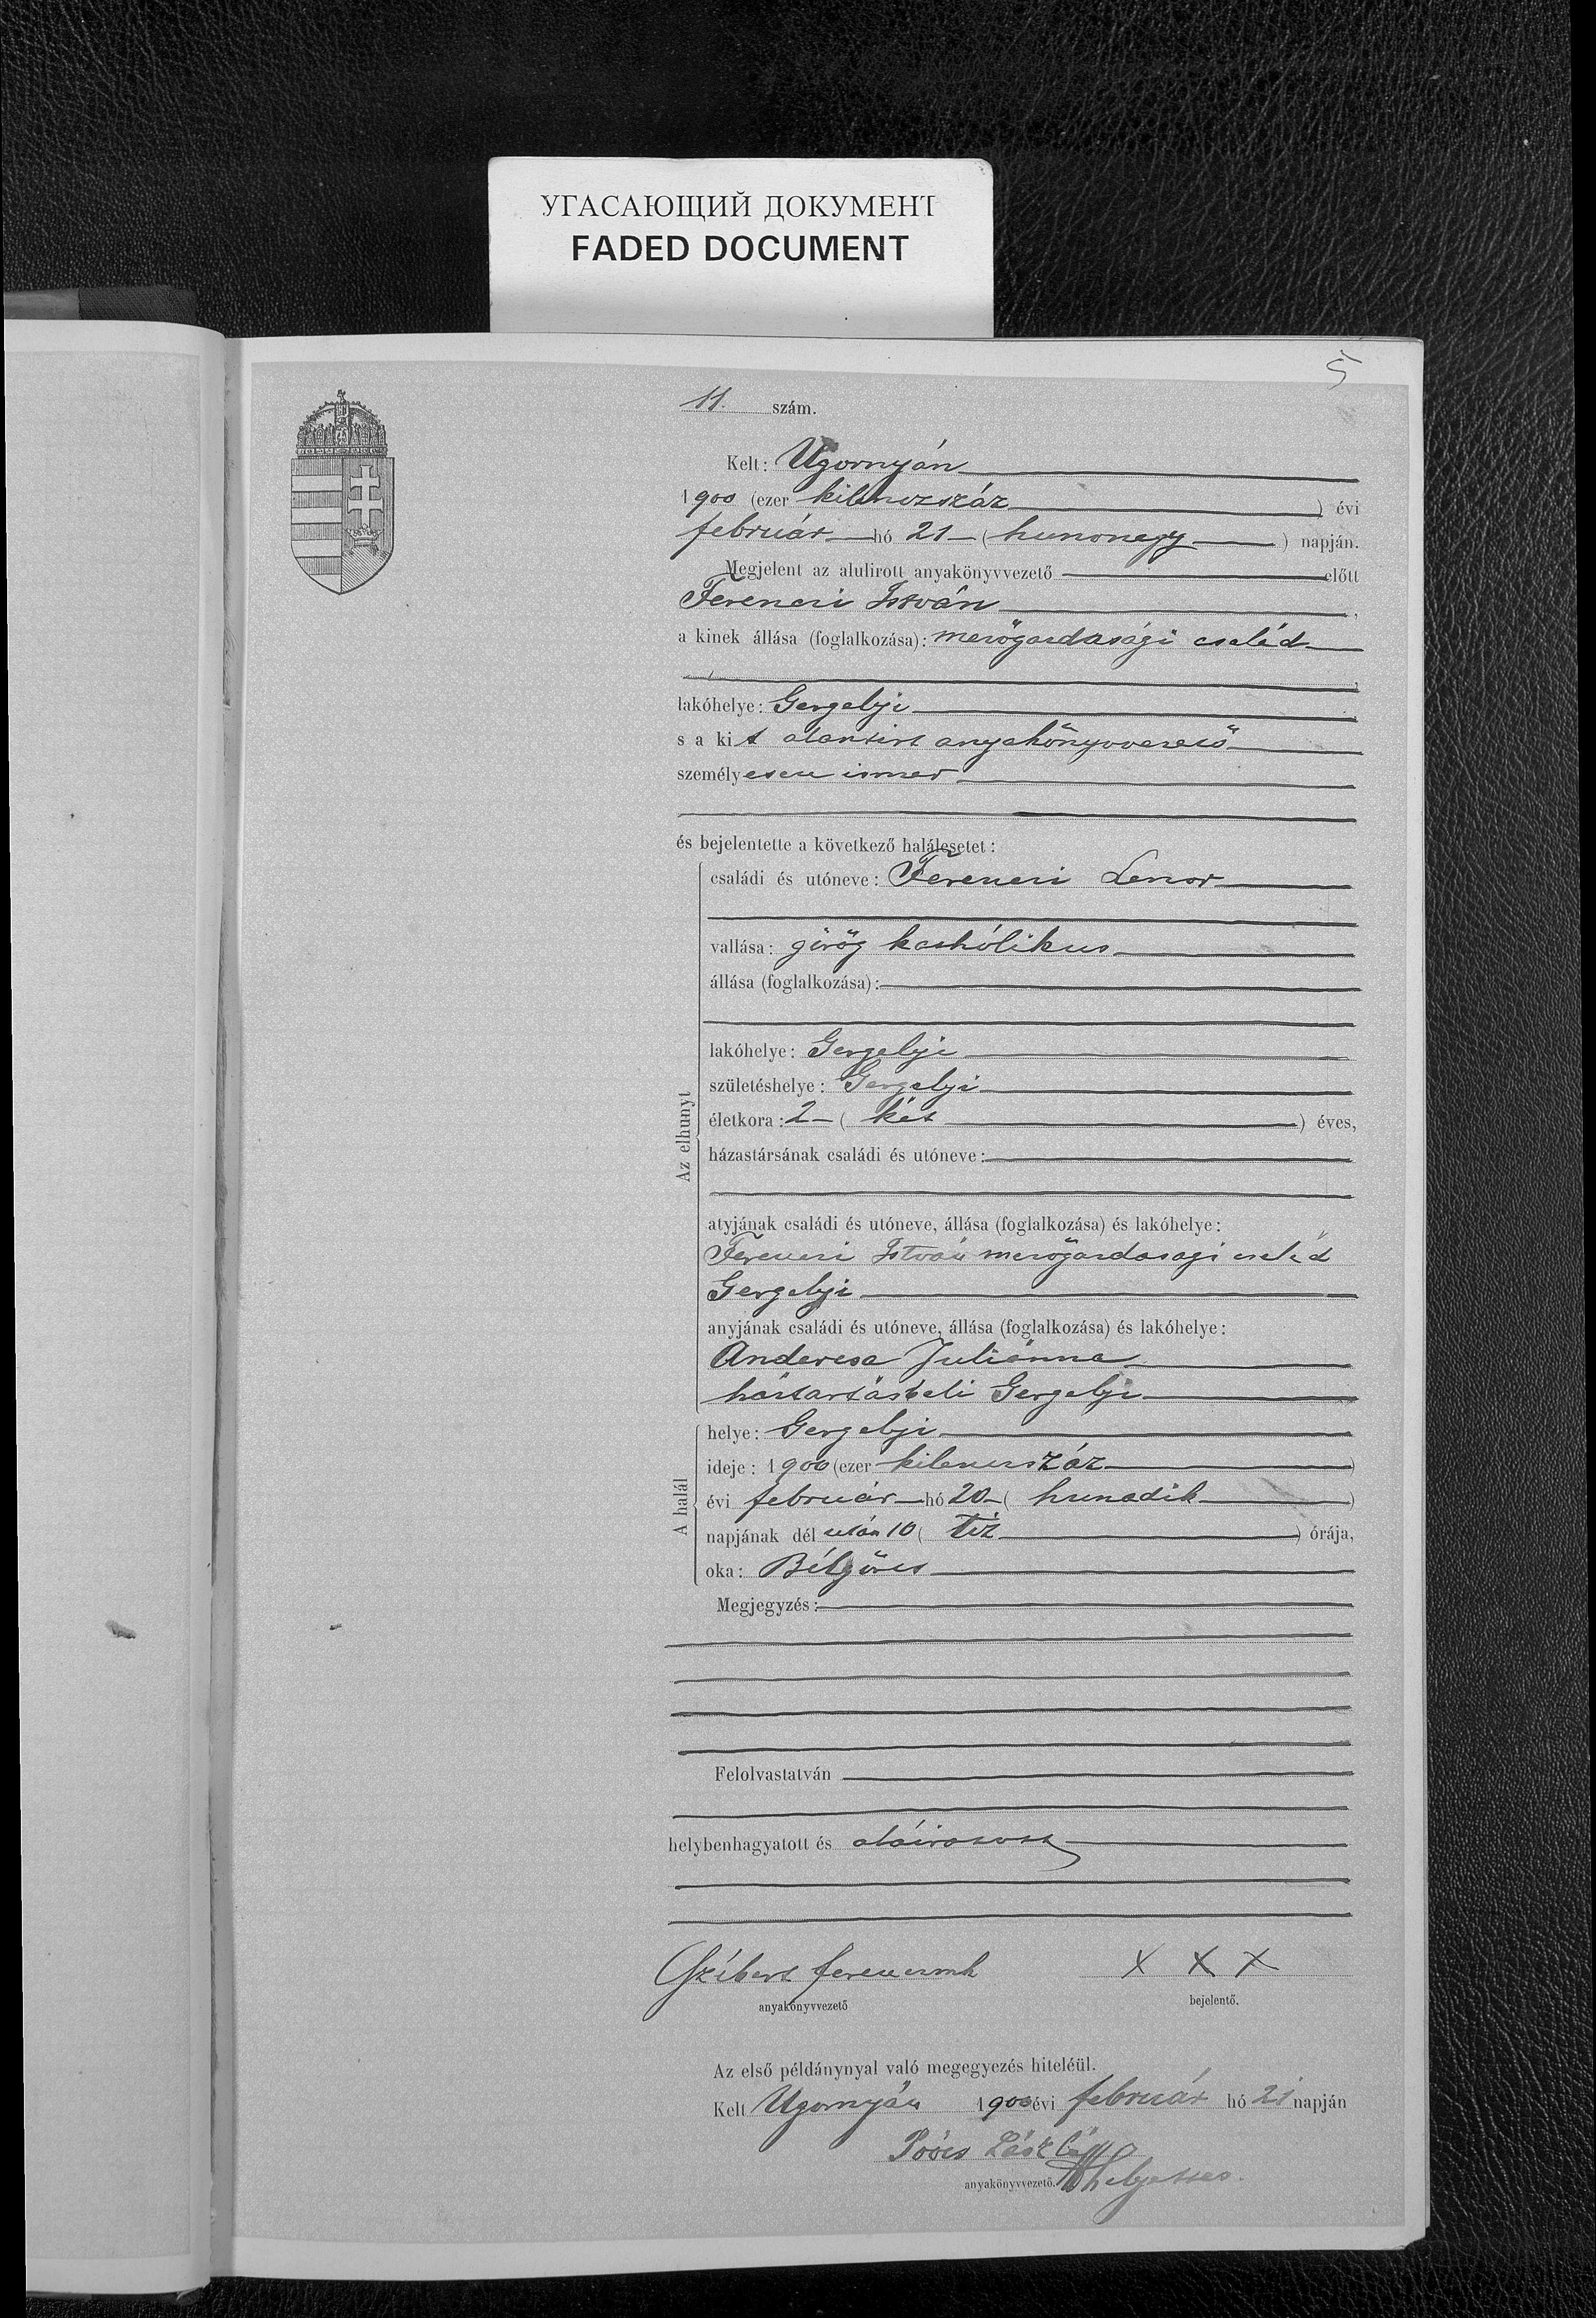 УГАСАЮЩИЙ ДОКУМЕНТ
FADED DOCUMENT
5
11. szám.
Kelt: Ugornyán
1900 (ezer kilenczszáz ) évi
február hó 21 ( huszonegy ) napján.
Megjelent az alulirott anyakönyvvezető előtt
Ferenczi István
a kinek állása (foglalkozása): mezőgazdasági cseléd
lakóhelye: Gergelyi
s a kit alantirt anyakönyvvezető
személyesen ismer
és bejelentette a következő halálesetet:
Az elhunyt
családi és utóneve: Ferenczi
vallása: görög katholikus
állása (foglalkozása):
lakóhelye: Gergelyi
születéshelye: Gergelyi
életkora: 2 ( két ) éves,
házastársának családi és utóneve:
atyjának családi és utóneve, állása (foglalkozása) és lakóhelye:
Ferenczi István mezőgazdasagi cseléd
Gergelyi
anyjának családi és utóneve, állása (foglalkozása) és lakóhelye:
Juliánna
háztartásbeli Gergelyi
A halál
helye: Gergelyi
ideje: 1900 (ezer kilenczszáz )
évi február hó 20 ( huszadik )
napjának dél után 10 ( tíz ) órája,
oka: Bélgörcs
Megjegyzés:
Felolvastatván
helybenhagyatott és aláiratott
Ferencz mk X X X
anyakönyvvezető bejelentő.
Az első példánynyal való megegyezés hiteléül.
Kelt Ugornyán 1900 évi február hó 21 napján
László
anyakönyvvezető. helyettes